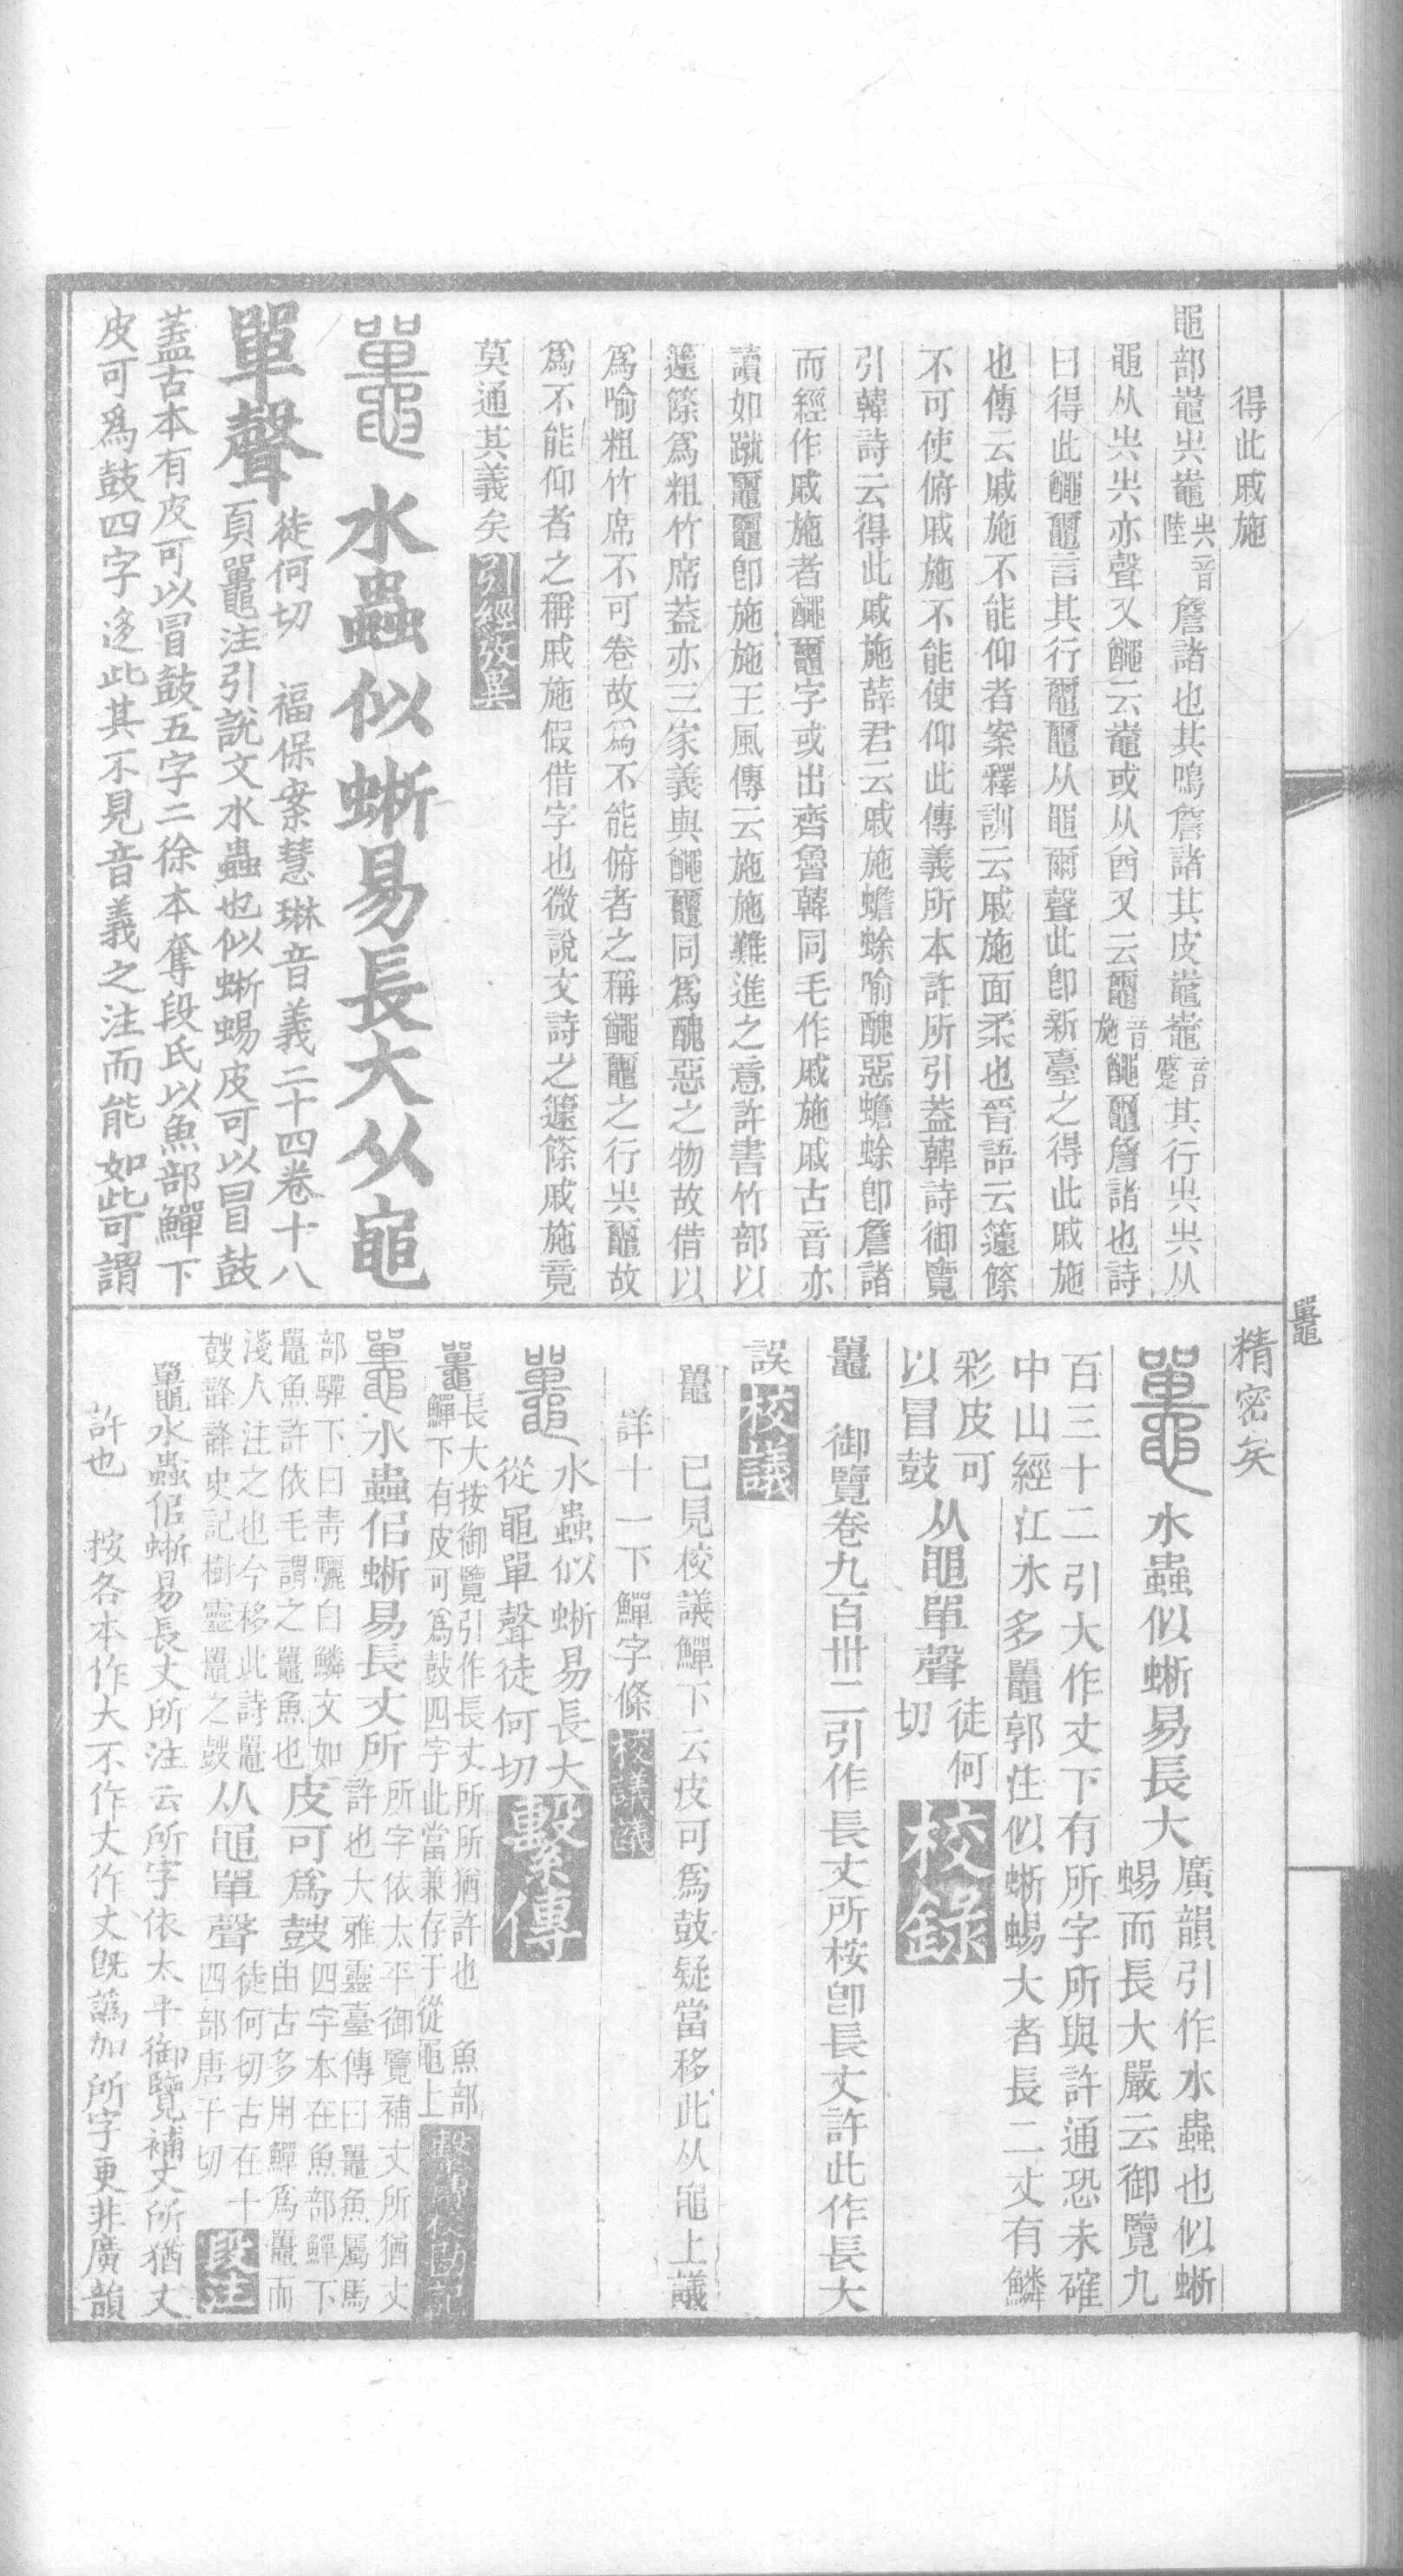 得此戚施
黽部鼀𡴆鼀𡴆音陸詹諸也其鳴詹諸其皮鼀鼀音蹙其行𡴆𡴆从
黽从𡴆𡴆亦聲又䵶云鼀或从酋又云𪓿音施䵶𪓿詹諸也詩
曰得此䵶𪓿言其行𪓿𪓿从黽爾聲此卽新臺之得此戚施
也傳云戚施不能仰者案釋訓云戚施面柔也晉語云籧篨
不可使俯戚施不能使仰此傳義所本許所引蓋韓詩御覽
引韓詩云得此戚施薛君云戚施蟾蜍喻醜惡蟾蜍卽詹諸
而經作戚施者䵶𪓿字或出齊魯韓同毛作戚施戚古音亦
讀如蹴𪓿𪓿卽施施王風傳云施施難進之意許書竹部以
籧篨爲粗竹席蓋亦三家義與䵶𪓿同爲醜惡之物故借以
爲喻粗竹席不可卷故爲不能俯者之稱䵶𪓿之行𡴆𪓿故
爲不能仰者之稱戚施假借字也微說文詩之籧篨戚施竟
莫通其義矣引經攷異
鼉水蟲似蜥易長大从黽
單聲徒何切 福保案慧琳音義二十四卷十八
頁鼉注引說文水蟲也似蜥蜴皮可以冒鼓
蓋古本有皮可以冒鼓五字二徐本奪段氏以魚部鱓下
皮可爲鼓四字迻此其不見音義之注而能如此可謂
鼉
精密矣
鼉水蟲似蜥易長大廣韻引作水蟲也似蜥
蜴而長大嚴云御覽九
百三十二引大作丈下有所字所與許通恐未確
中山經江水多鼉郭注似蜥蜴大者長二丈有鱗
彩皮可
以冒鼓从黽單聲徒何
切校錄
鼉 御覽卷九百卅二引作長丈所桉卽長丈許此作長大
誤校議
鼉 已見校議鱓下云皮可爲鼓疑當移此从黽上議
詳十一下鱓字條校議議
鼉水蟲似蜥易長大
從黽單聲徒何切繫傳
鼉長大按御覽引作長丈所所猶許也 魚部
鱓下有皮可爲鼓四字此當兼存于從黽上繫傳校勘記
鼉水蟲佀蜥易長丈所所字依太平御覽補丈所猶丈
許也大雅靈臺傳曰鼉魚屬馬
部驒下曰靑驪白鱗文如
鼉魚許依毛謂之鼉魚也皮可爲鼓四字本在魚部鱓下
由古多用鱓爲鼉而
淺人注之也今移此詩鼉
鼓韸韸史記樹靈鼉之鼓从黽單聲徒何切古在十
四部唐干切段注
鼉水蟲佀蜥易長丈所注云所字依太平御覽補丈所猶丈
許也 按各本作大不作丈作丈旣譌加所字更非廣韻